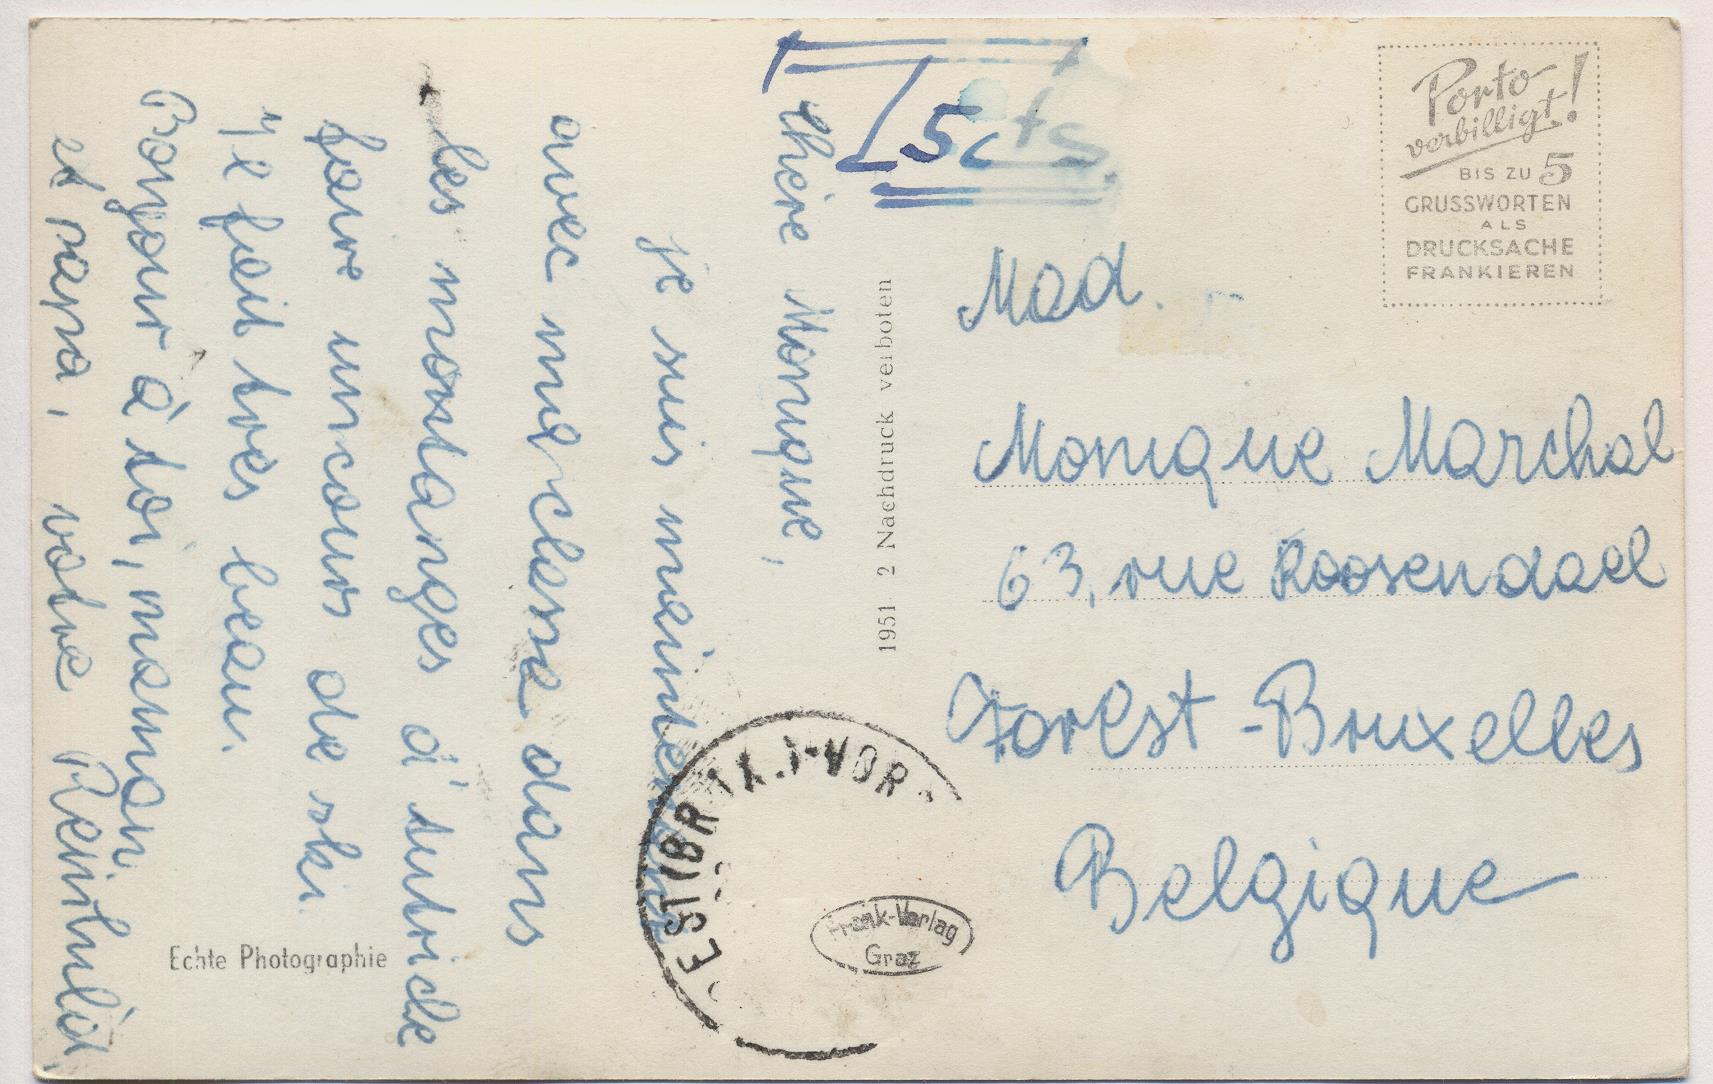 Chère Monique,
je suis maintenant
avec une classe dans
les montanges d'Autriche
faire un cours de ski.
Il fait très beau.
Bonjour à toi, maman
et papa, votre Reinhild.
Echte Photographie
1951 2 Nachdruck verboten
T 5 cts.
Porto
verbilligt!
BIS ZU 5
GRUSSWORTEN
ALS
DRUCKSACHE
FRANKIEREN
Mad.
Monique Marchal
63, rue Roosendael
Forest-Bruxelles
Belgique
Frank-Verlag
Graz